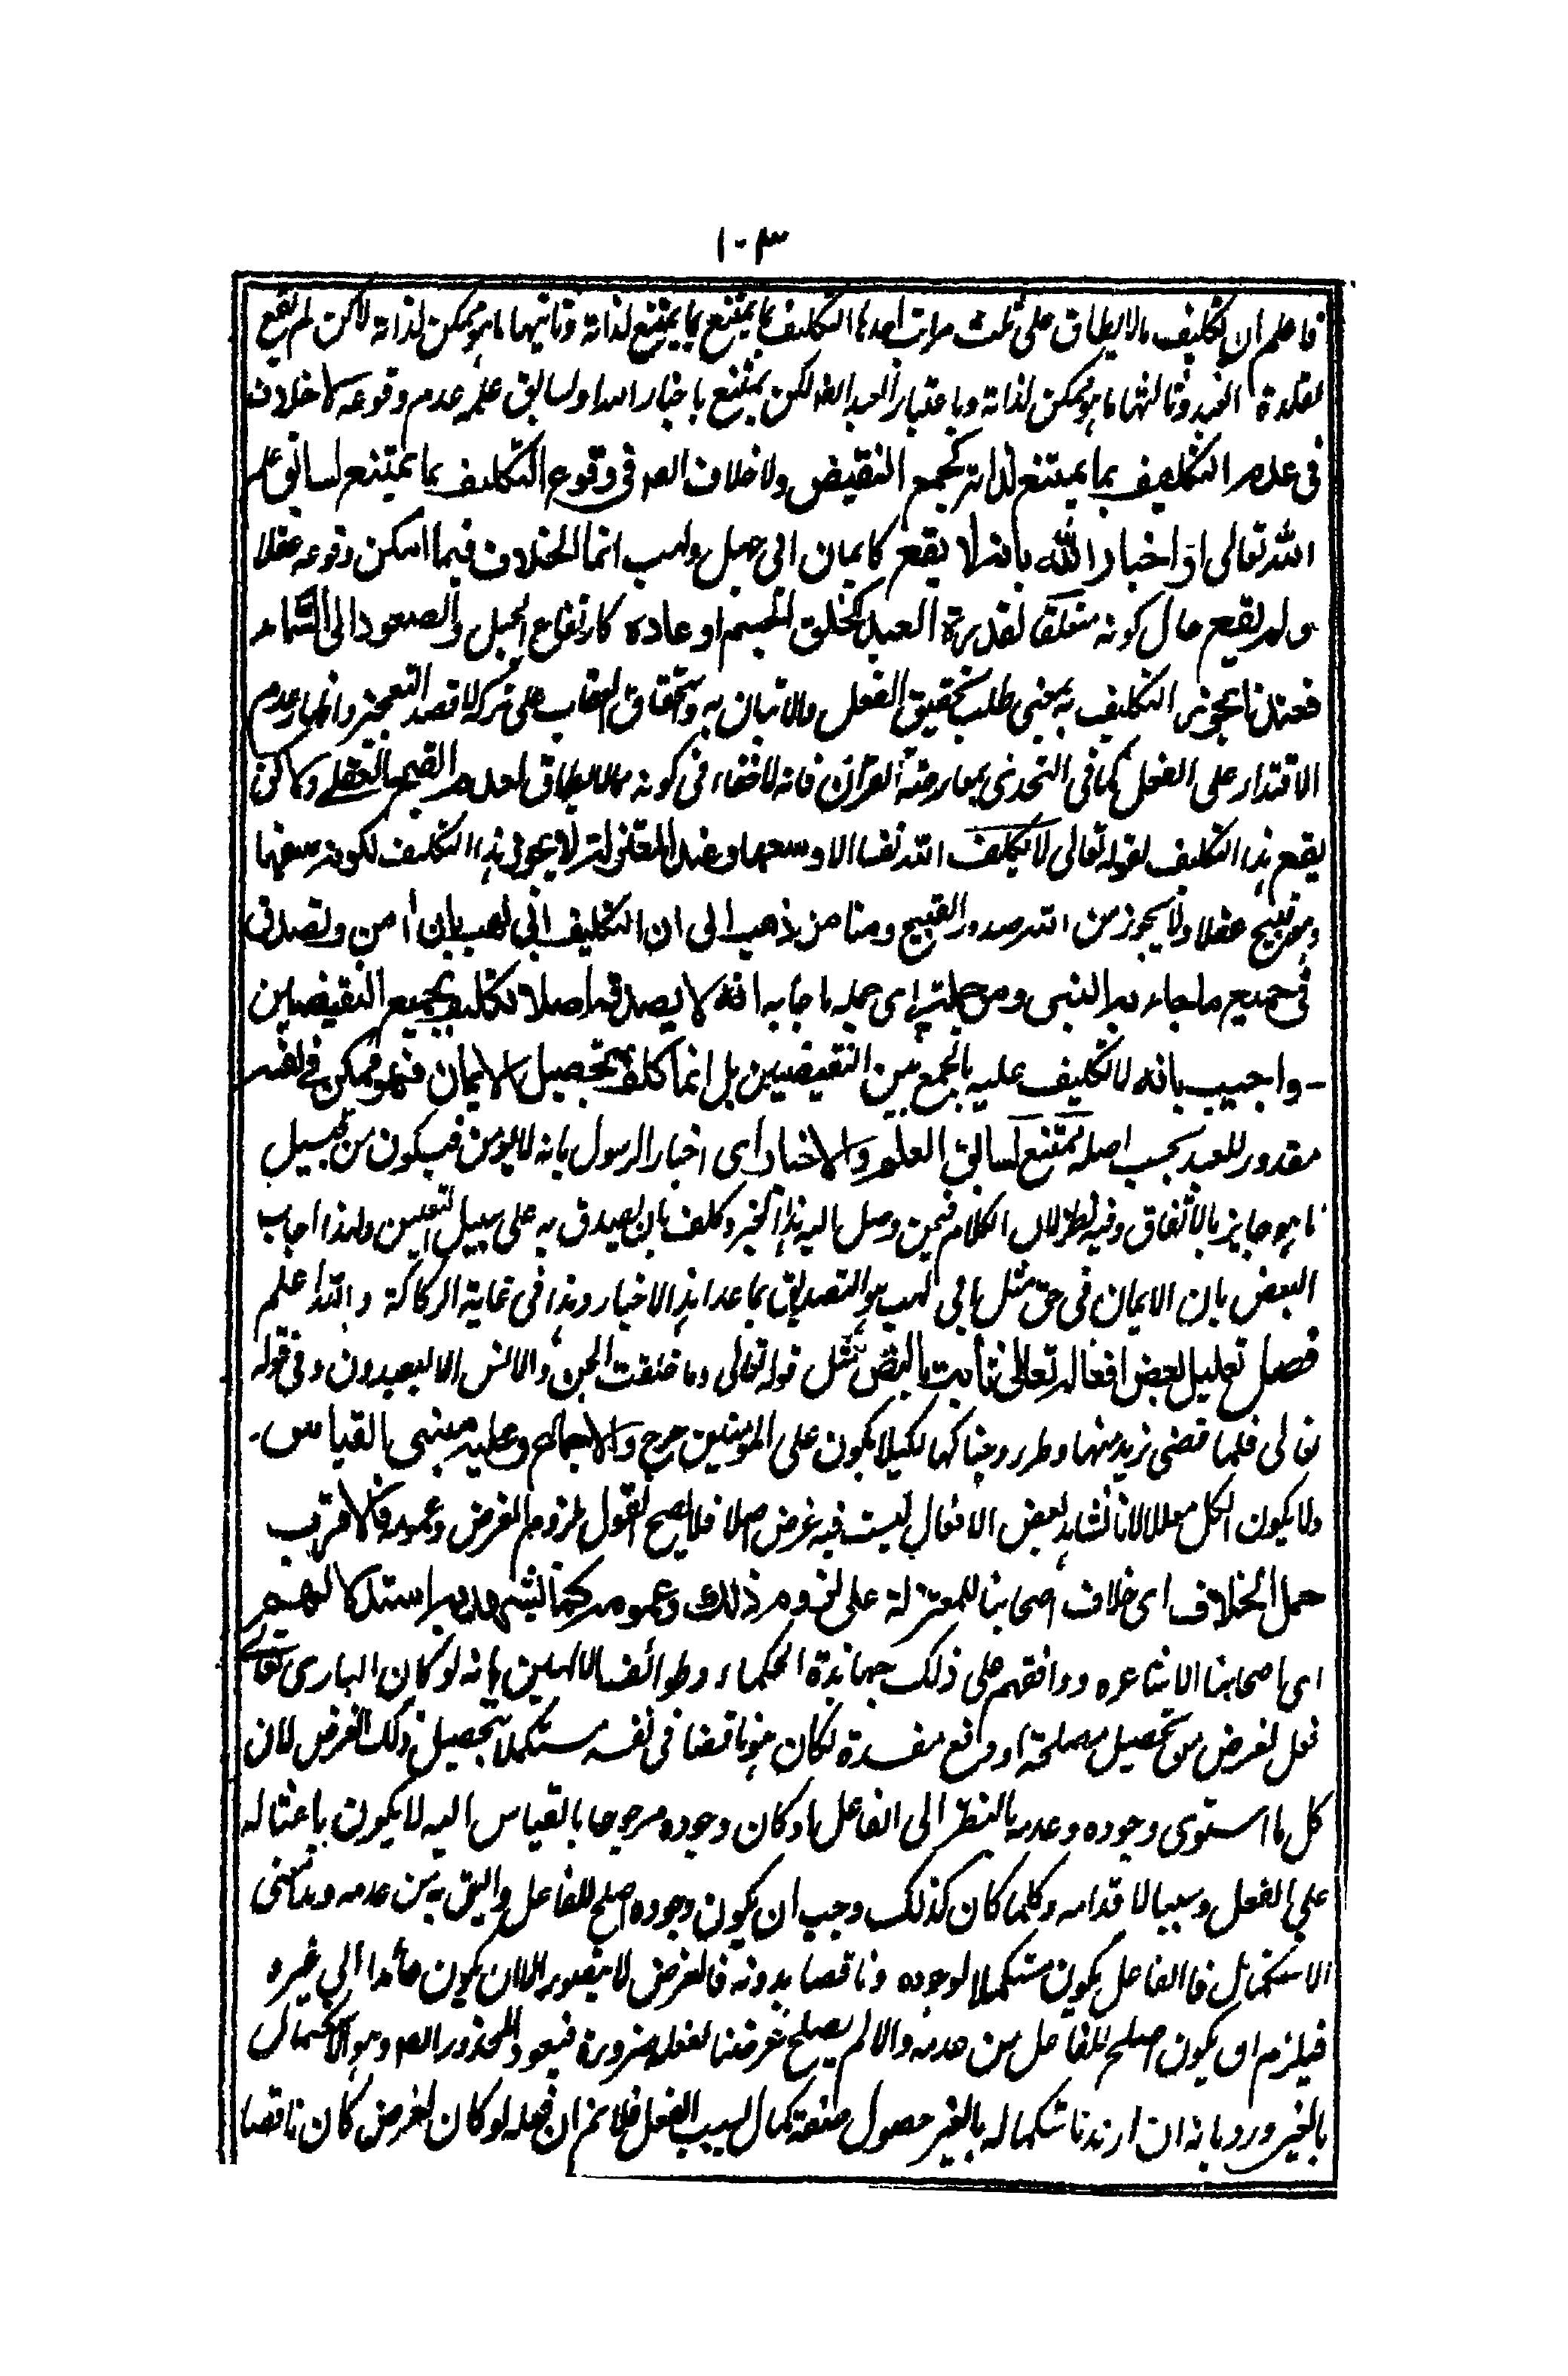 ١٠٣
فاعلم ان تكليف مالايطاق على ثلث مراتب احدها التكليف بما يمتنع بما يمتنع لذاته وثانيها ما هو ممكن لذاته لاكن لم يقع
لقدرة العبد وثالثها ما هو ممكن لذاته وباعتبار العبد ايضا لكن يمتنع باخبار الله او لسابق علمه عدم وقوعه لا خلاف
فى عدم التكليف بما يمتنع لذاته كجمع النقيض ولا خلاف ايضا فى وقوع التكليف بما يمتنع لسابق علم
الله تعالى او اخبار الله بانه لا يقع كايمان ابى جهل ولهب انما الخلاف فيما امكن وقوعه عقلا
ولم يقع حال كونه متعلقا لقدرة العبد كخلق الجسم او عاده كارتفاع الجبل والصعود الى السماء
فعندنا يجوز التكليف به بمعنى طلب تحقيق الفعل والاتيان به واستحقاق العقاب على تركه لا قصد التعجيز واظهار عدم
الاقتدار على الفعل كما فى التحدى بمعارضة القرآن فانه لا خفاء فى كونه مما لايطاق لعدم القبح العقلى وكما لن
يقع هذا التكليف لقوله تعالى لا يكلف الله نفسا الا وسعها وعند المعتزلة لا يجوز هذا التكليف لكونه سفها
وهو قبيح عقلا ولا يجوز من الله صدور القبيح ومنا من ذهب الى ان التكليف ابى لهب بان امن وتصدق
فى جميع ما جاء به النبى ومن جملته اى جمله ما جاء به انه لا يصدقه اصلا تكليف بجميع النقيضين
واجيب بانه لا تكليف عليه بالجمع بين النقيضيين بل انما كلف بتحصيل الايمان فهو ممكن فى نفسه
مقدور للعبد بحسب اصله يمتنع لسابق العلم والاخبار اى اخبار الرسول بانه لا يومن فيكون من قبيل
ما هو جايز بالاتفاق وفيه نظر لان الكلام فيمن وصل اليه هذا الخبر وكلف بان يصدق به على سبيل التعيين ولهذا اجاب
البعض بان الايمان فى حق مثل ابى لهب هو التصديق بما عدا هذا الاخبار وهذا فى غاية الركاكة والله اعلم
فصل تعليل بعض افعاله تعالى ثابت بالنص مثل قوله تعالى وما خلقت الجن والانس الا ليعبدون وفى قوله
تعالى فلما قضى زيد منها وطرا زوجناكها لكيلا يكون على المؤمنين حرج والاجماع وعليه مبنى القياس
ولا يكون الكل معللا لانا نشاهد بعض الافعال ليست فيه غرض اصلا فلا يصح القول بلزوم الغرض وعمومه فالاقرب
حمل الخلاف اى خلاف اصحابنا للمعتزلة على لزوم ذلك وعمومه كما يشهد به استدلالهم
اى اصحابنا الاشاعره ووافقهم على ذلك جهابذة الحكماء وطوائف الالهيين بانه لو كان البارى تعالى
فعل لغرض من تحصيل مصلحة او دفع مفسدة لكان هو ناقصا فى نفسه مستكملا بتحصيل ذلك الغرض لان
كل ما استوى وجوده وعدمه بالنظر الى الفاعل او كان وجوده مرجوحا بالقياس اليه لا يكون باعثا له
على الفعل وسببا لاقدامه وكلما كان كذلك وجب ان يكون وجوده اصلح للفاعل واليق به من عدمه وهذا معنى
الاستكمال فالفاعل يكون مستكملا لوجوده وناقصا بدونه فالغرض لا يتصور الا ان يكون عائدا الى غيره
فيلزم ان يكون اصلح للفاعل من عدمه والا لم يصلح غرضا لفعله ضرورة فيعود المحذور ايضا وهو الاستكمال
بالغير ورد بانه ان اردتم باستكماله بالغير حصول صفة كمال بسبب الفعل فلا نم ان فعله لو كان لغرض كان ناقصا